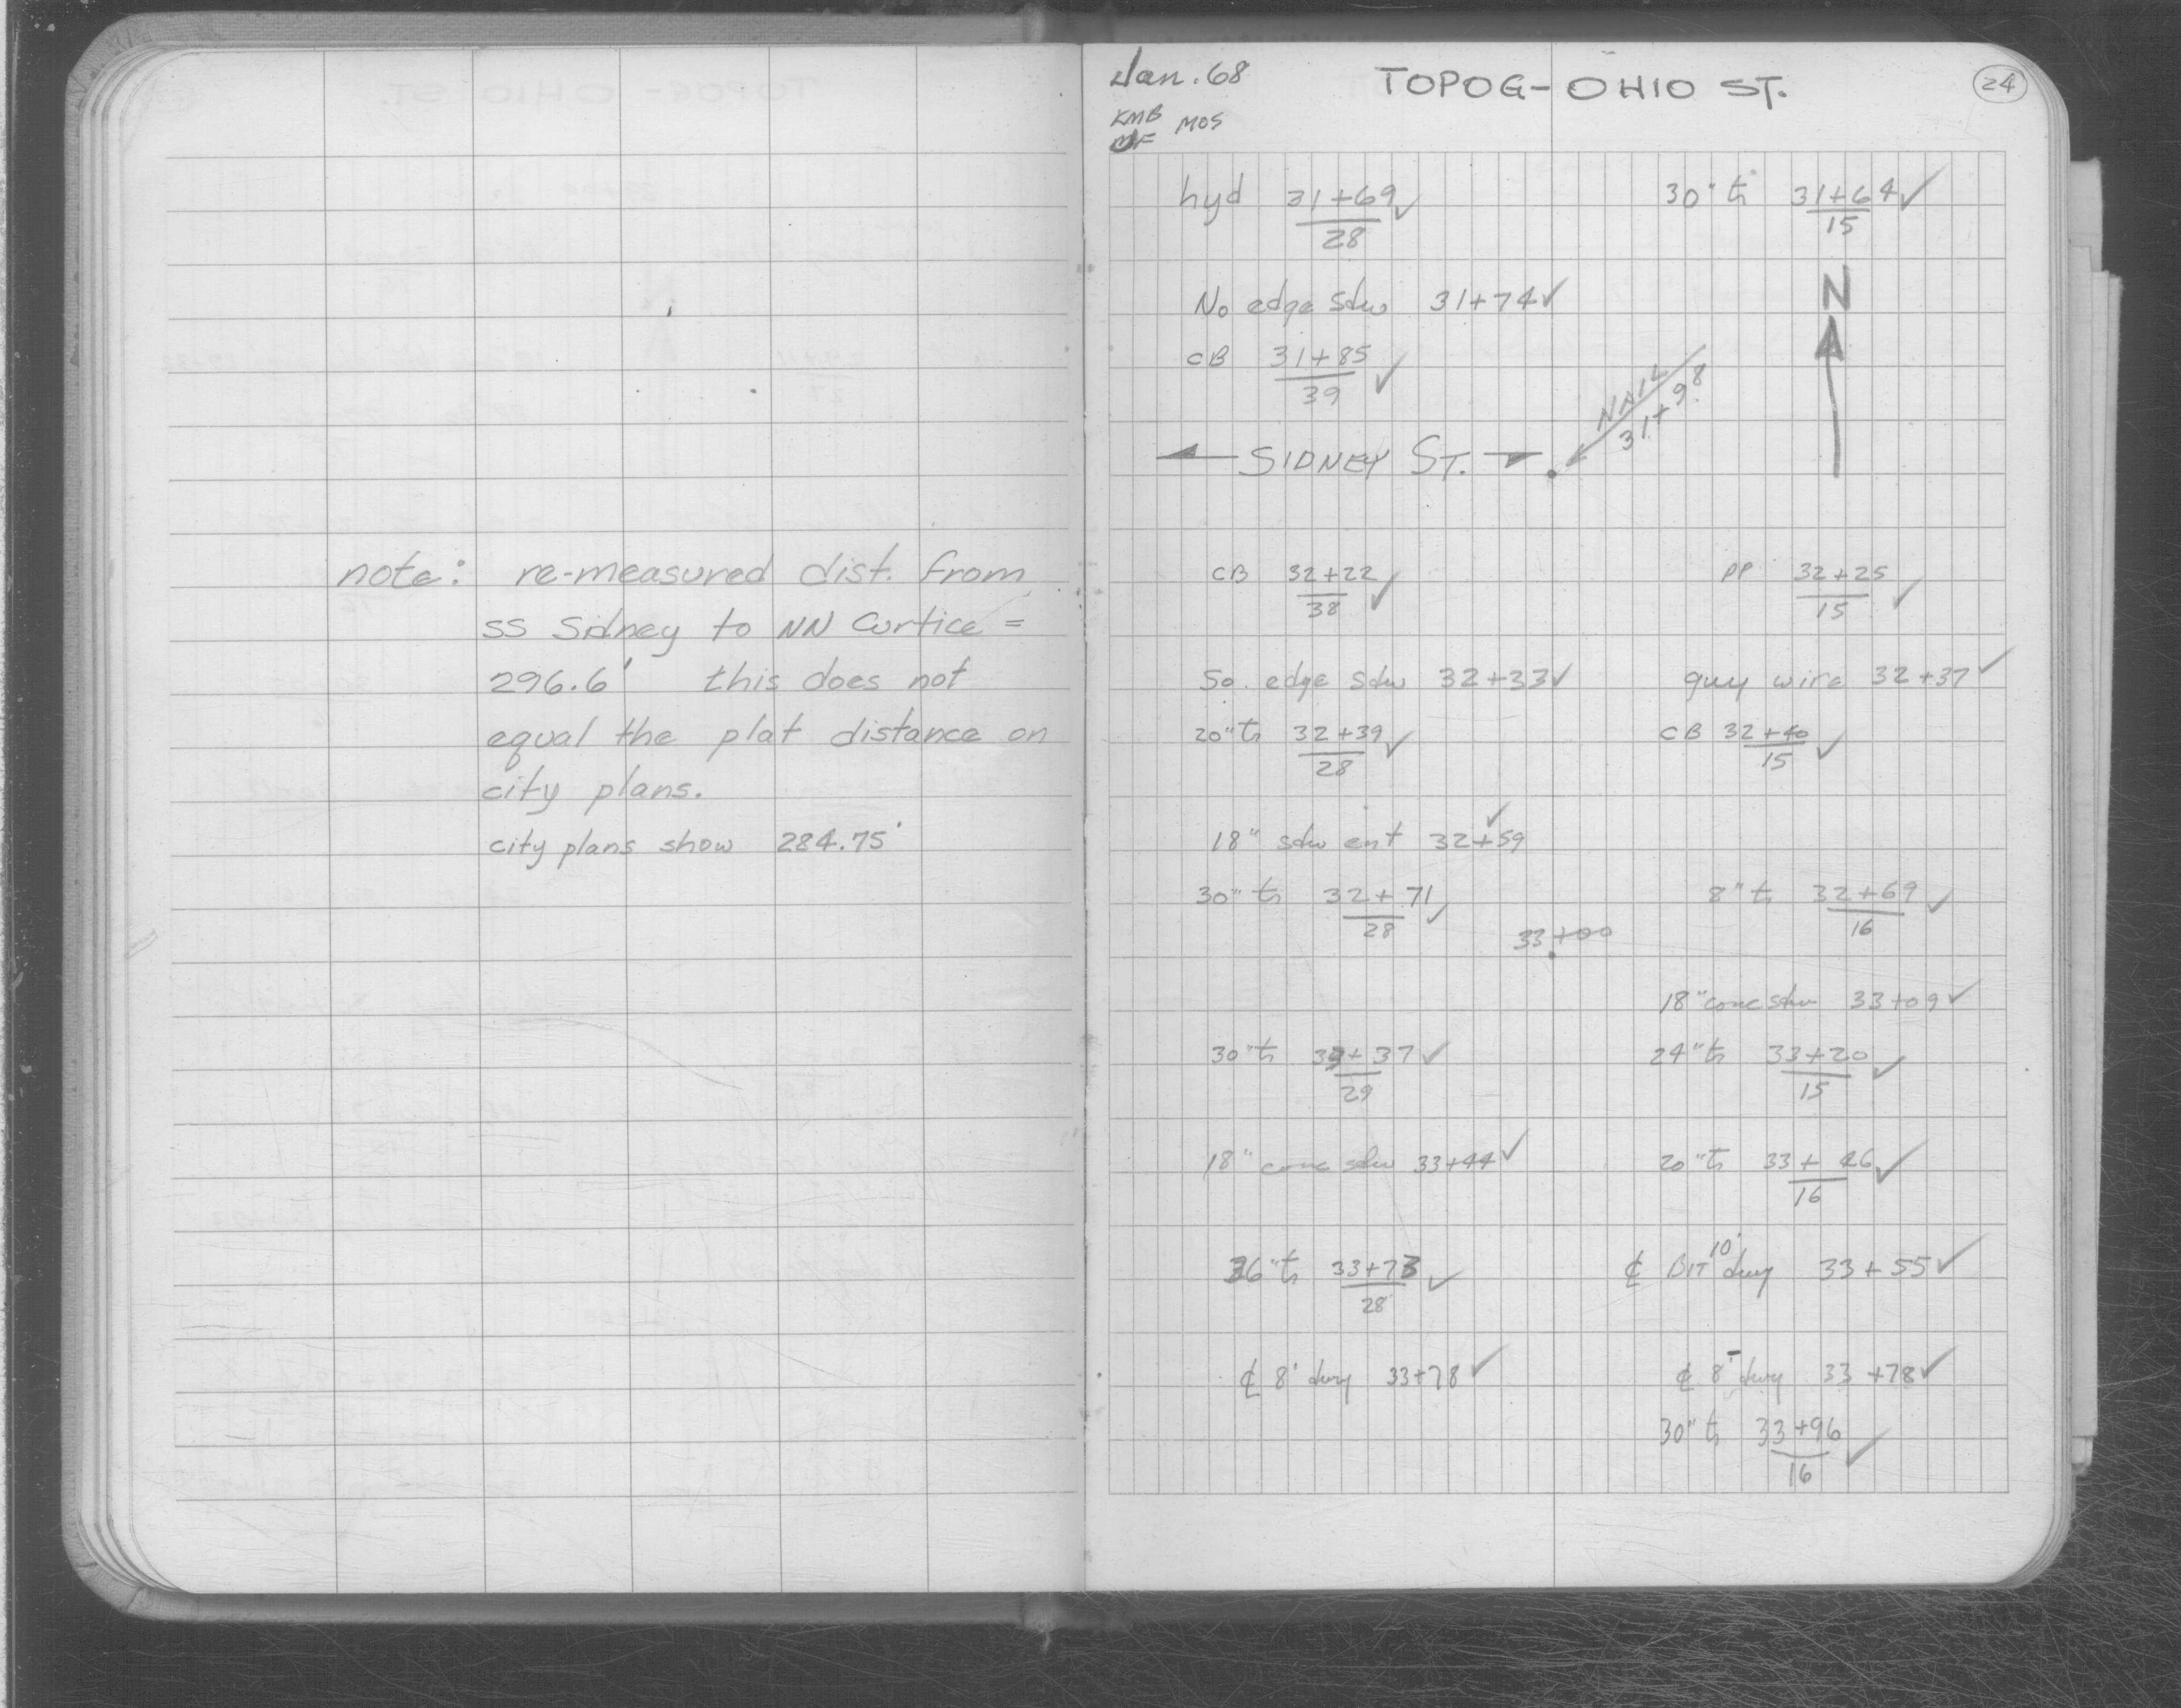 note: re-measured dist. from
SS Sidney to NN Curtice =
296.6' this does not
equal the plat distance on
city plans.
city plans show 284.75'
Jan. 68 TOPOG-OHIO ST. 24
KMB MOS
hyd 31+69 ✓ 30" tr 31+64 ✓
28 15
No edge sdw 31+74 ✓ N
CB 31+85 ✓
39
NAIL
31+98
SIDNEY ST.
CB 32+22 ✓ PP 32+25 ✓
38 15
So. edge sdw 32+33 ✓ guy wire 32+37 ✓
20" tr 32+39 ✓ CB 32+40 ✓
28 15
18" sdw ent 32+59 ✓
30" tr 32+71 ✓ 8" tr 32+69 ✓
28 16
33+00
18" conc sdw 33+09 ✓
30" tr 33+37 ✓ 24" tr 33+20 ✓
29 15
18" conc sdw 33+44 ✓ 20" tr 33+46 ✓
16
36" tr 33+73 ✓ ℄ BIT 10' dwy 33+55 ✓
28
℄ 8' dwy 33+78 ✓ ℄ 8' dwy 33+78 ✓
30" tr 33+96 ✓
16